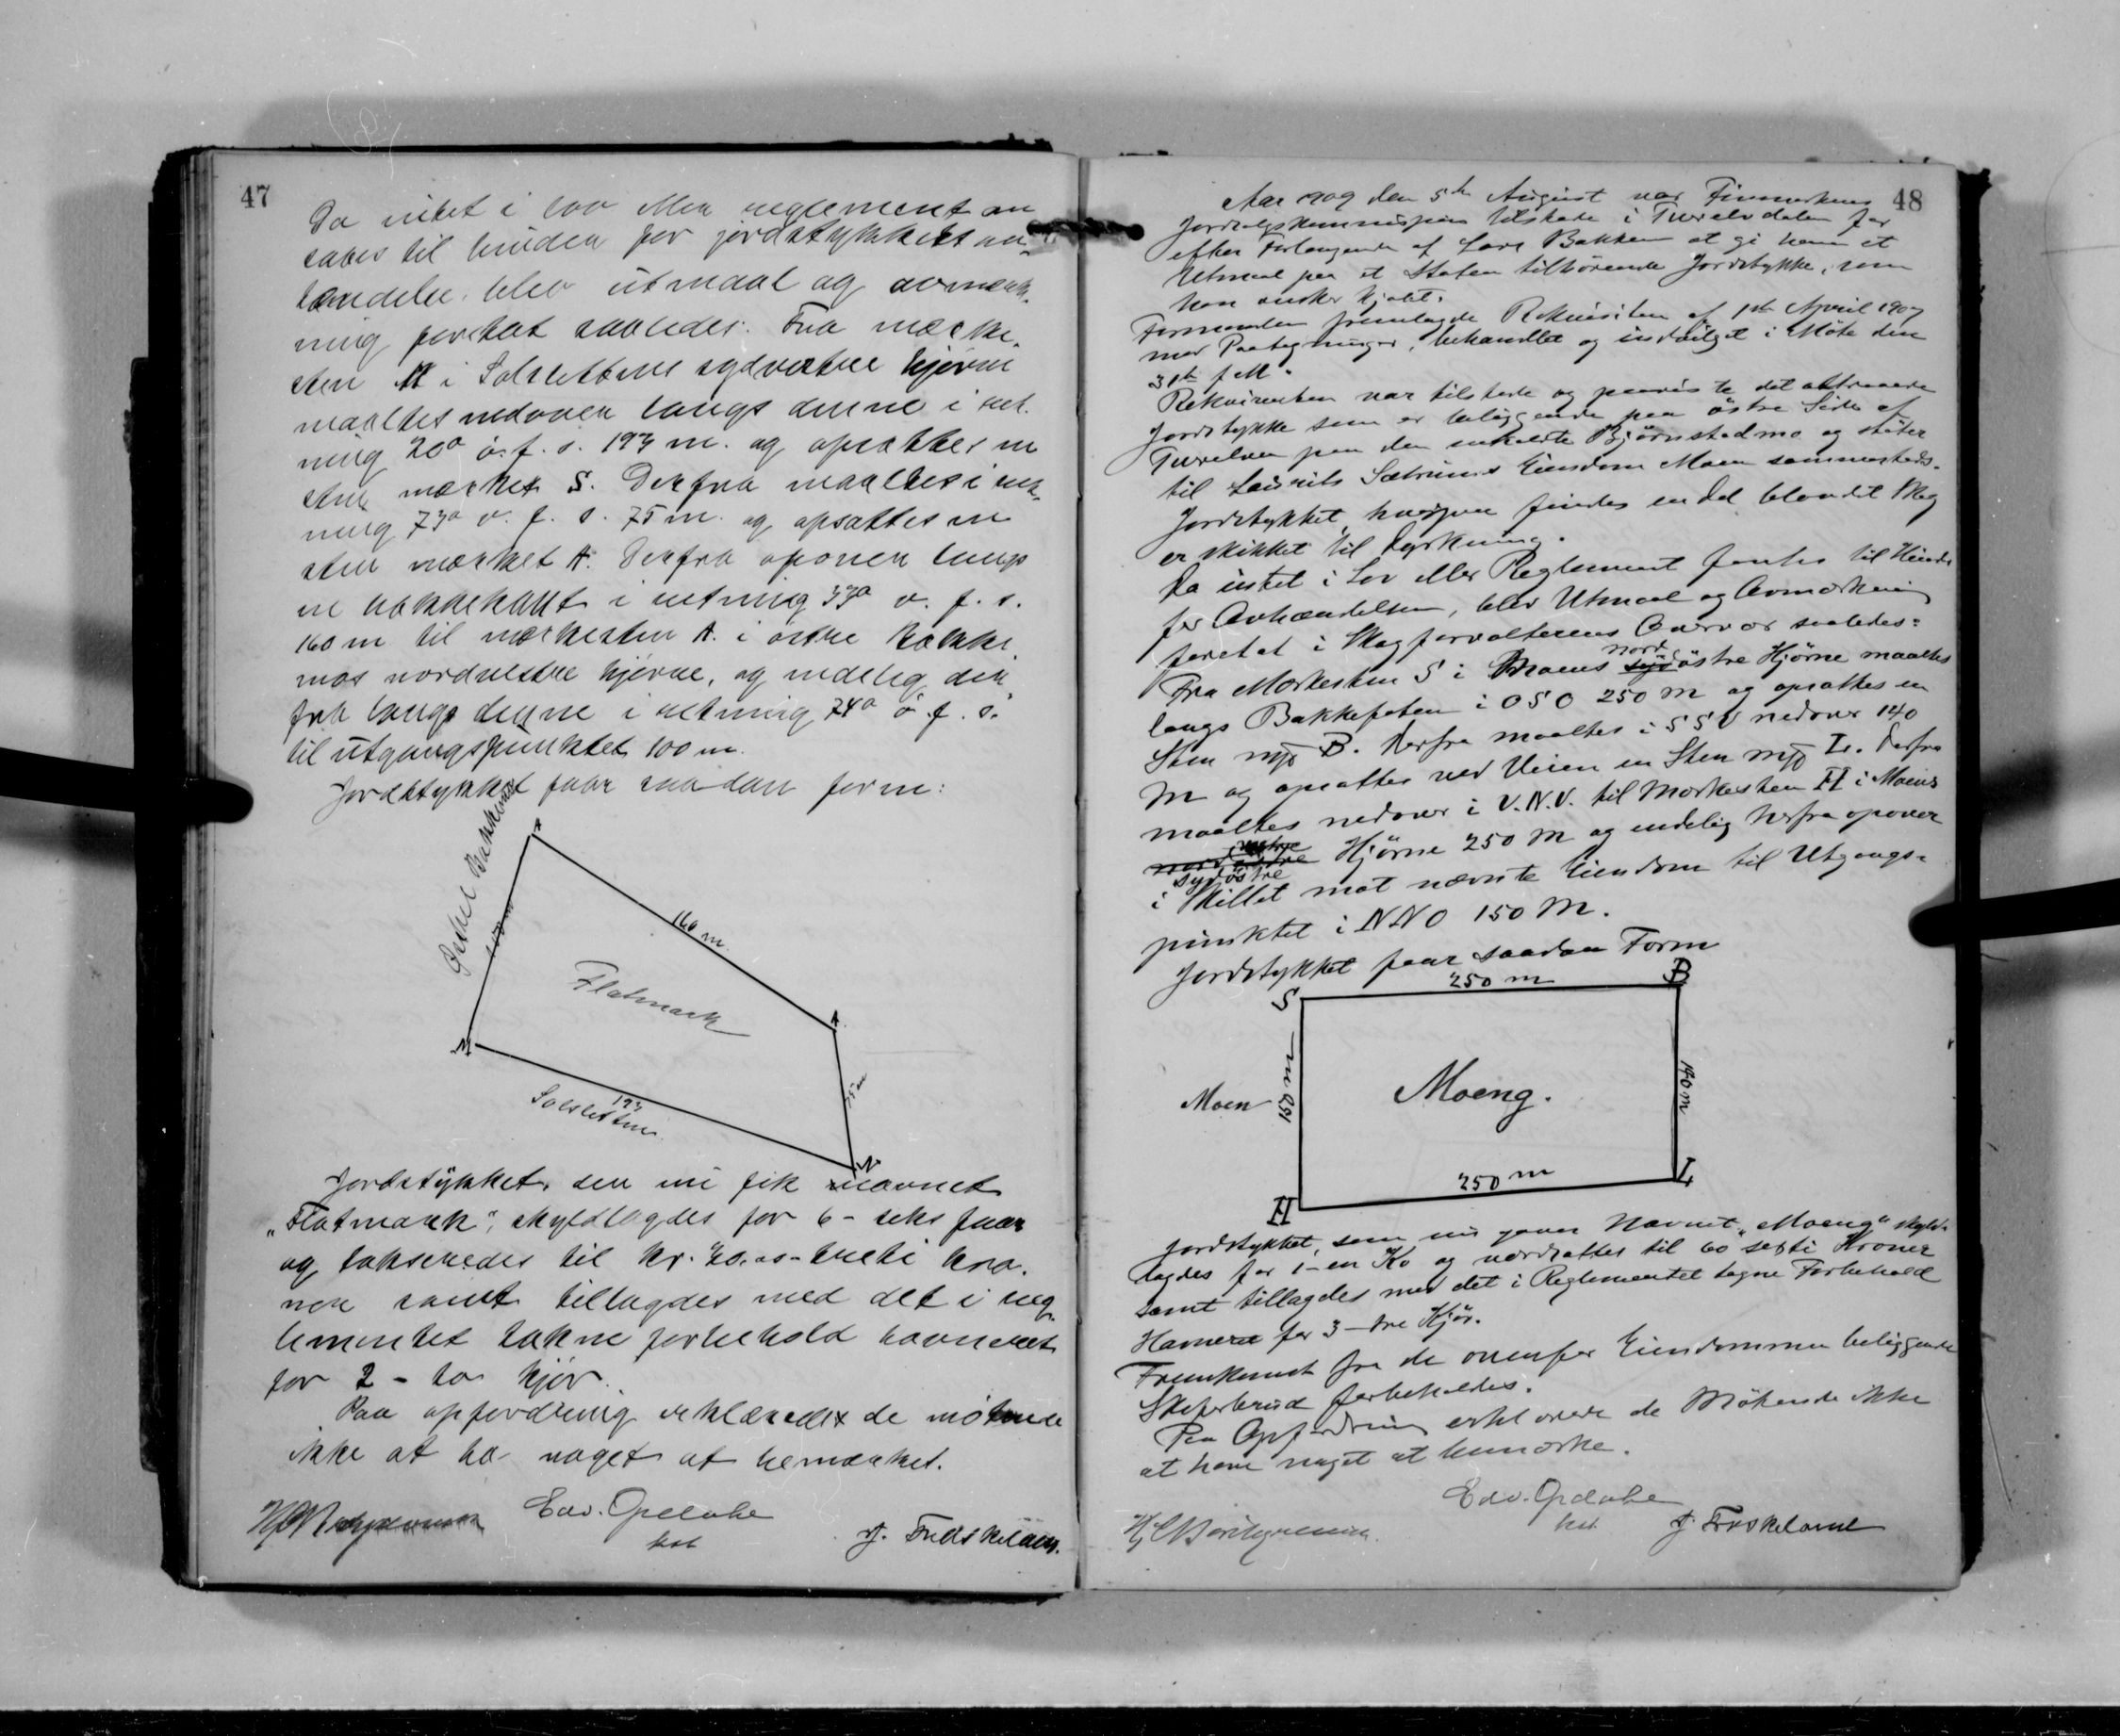 47
Da intet i lov eller reglement an-
saaes til hinder for jordstykkets av-
hændelse, blev utmaal og avmærk-
ning foretat saaledes: Fra mærke-
sten M i Solslettens sydvestre hjørne
maaltes nedover langs denne i ret-
ning 20° ø. f. s. 193 m. og opsattes en
sten merket S. Derfra maaltes i ret-
ning 73° v. f. s. 75 m. og opsattes en
sten mærket A. Derfra opover langs
en bakkekant i retning 33° v. f. s.
160 m til merkesten A. i østre Bakke-
mos nordvestre hjørne, og endelig der-
fra langs denne i retning 74° ø. f. s.
til utgangspunktet 100 m.
Jordstykket faar saadan form:
Østre
A
160 m.
Flatmark
A.
M
75 m
193
Solsletten
Jordstykket, som nu fik navnet
„Flatmark", skyldlagdes for 6 - seks faar
og takseredes til kr. 20.00 - tyve kro-
ner samt tillagdes med det i reg-
lementet tagne forbehold havneret
for 2 - to kjør.
Paa opfordring erklærede de møtende
ikke at ha noget at bemærke.
Edv. Opdahl
48
Aar 1909 den 5te August var Finmarkens
Jordsalgskommission tilstede i Tverelvdalen for
efter Forlangende af Lars Bakken at gi ham et
Utmaal paa et Staten tilhørende Jordstykke, som
han ønsker kjøbt.
Formanden fremlagde Rekvisition af 1ste April 1907
med Paategninger, behandlet og indvilget i Møte den
31te f M.
Rekvirenten var tilstede og paaviste det attraaede
Jordstykke som er beliggende paa østre Side af
Tverelven paa den saakaldte Bjørnstadmo og støter
til Laurits Sætrums Eiendom Moen sammesteds.
Jordstykket, hvorpaa findes en Del blandet Skog
er skikket til Dyrkning.
Da intet i Lov eller Reglement fandtes til Hinder
for Avhændelsen, blev Utmaal og Avmerkning
foretat i Skogforvalterens Overvær saaledes:
Fra Merkesten S i Moens nord østre Hjørne maaltes
langs Bakkefoten i OSO 250 m og opsattes en
Sten mrk B. Derfra maaltes i SSV nedover 140
m og opsattes ved Veien en Sten mrk L. Derfra
maaltes nedover i V.N.V. til Merkesten H i Moens
sydøstre Hjørne 250 m og endelig herfra opover
i Skillet mot nævnte Eiendom til Utgangs-
punktet i NNO 150 m.
Jordstykket faar saadan Form
S 250 m B
Moen 150 m Moeng. 140 m
H 250 m L
Jordstykket, som nu gaves Navnet „Moeng" skyld-
lagdes for 1 - en Ko og værdsattes til 60 seksti Kroner
samt tillagdes med det i Reglementet tagne Forbehold
Havneret for 3 - tre Kjør.
Fremkomst fra de ovenfor Eiendommen beliggende
Skiferbrud forbeholdes.
Paa Opfordring erklærede de Møtende ikke
at have noget at bemerke.
Edv. Opdahl